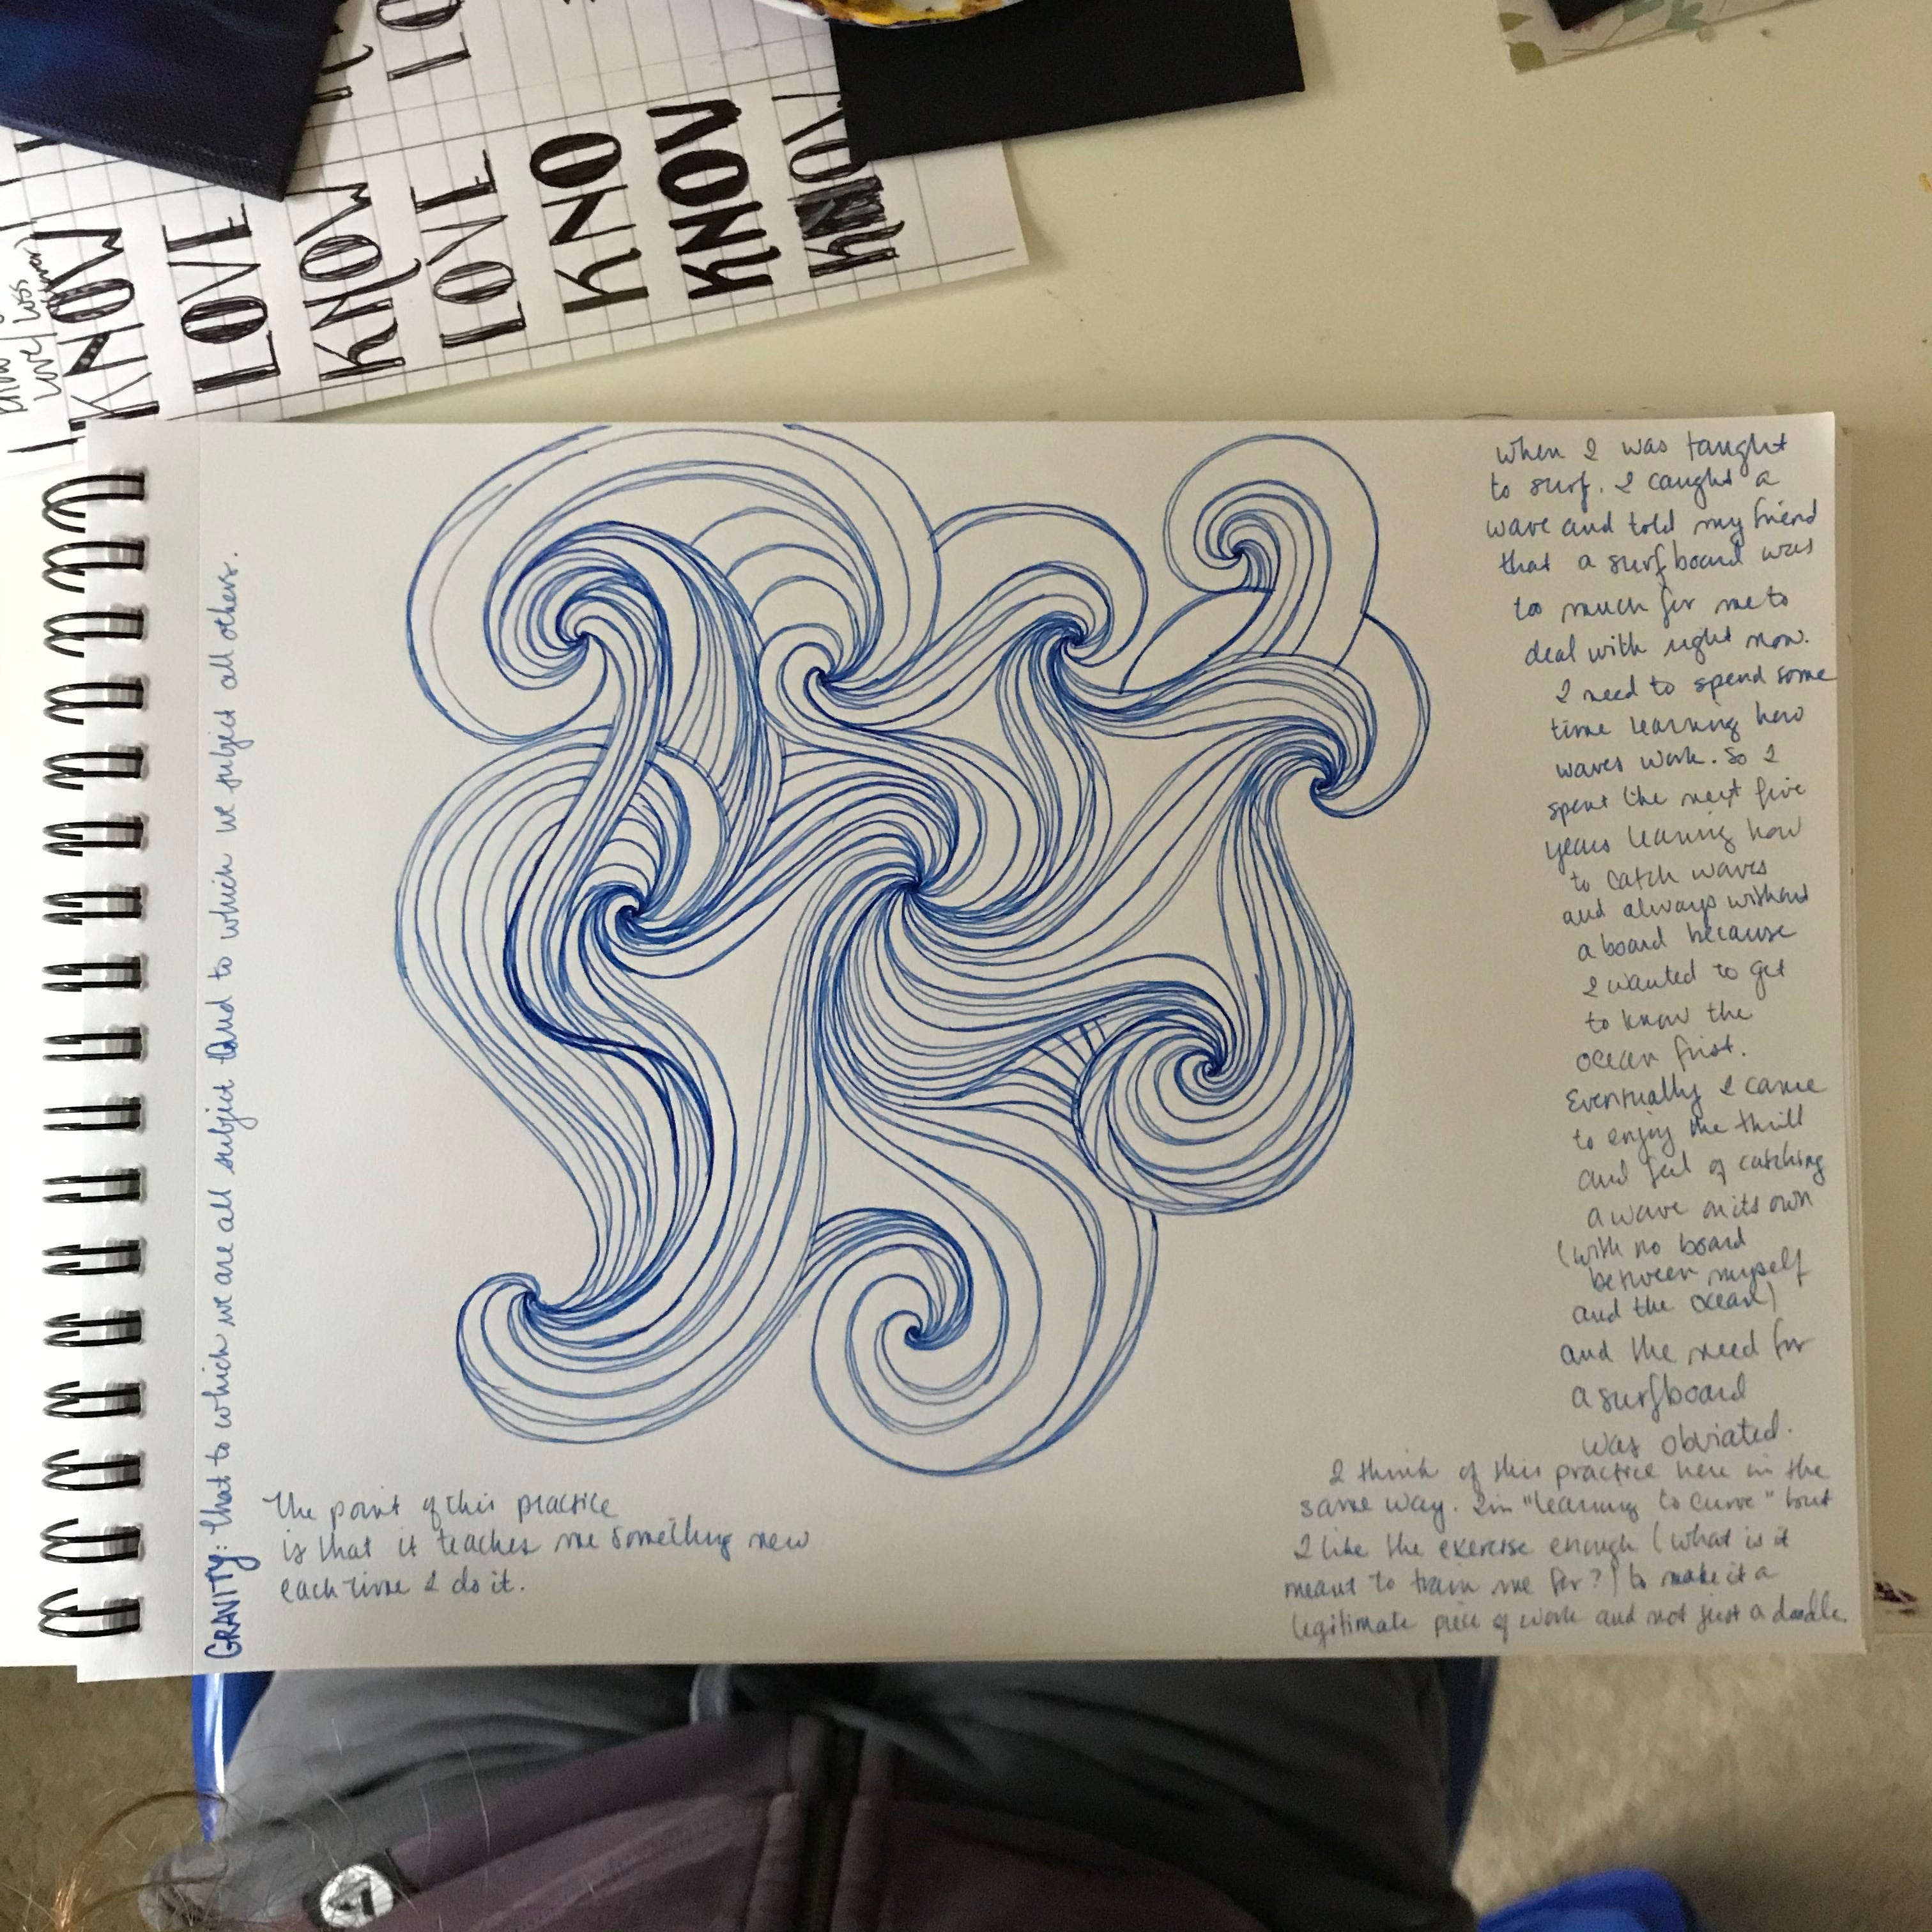 LO
KNOW
LOVE
KNOW
LOVE
KNO
KNOW
KNOW
GRAVITY: that to which we are all subject and to which we subject all others.
When I was taught
to surf. I caught a
wave and told my friend
that a surfboard was
too much for me to
deal with right now.
I need to spend some
time learning how
waves work. So I
spent the next five
years learning how
to catch waves
and always without
a board because
I wanted to get
to know the
ocean first.
Eventually I came
to enjoy the thrill
and feel of catching
a wave on its own
(with no board
between myself
and the ocean)
and the need for
a surfboard
was obviated.
I think of this practice here in the
same way. I'm "learning to curve" but
I like the exercise enough (what is it
meant to train me for?) to make it a
legitimate piece of work and not just a doodle.
The point of this practice
is that it teaches me something new
each time I do it.